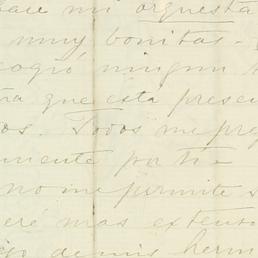 mi orquesta
muy bonitas -
cogió ningun
que esta presen
os. Todos me pre
mente por ti -
no me permite s
eré mas extenso
de mis herm